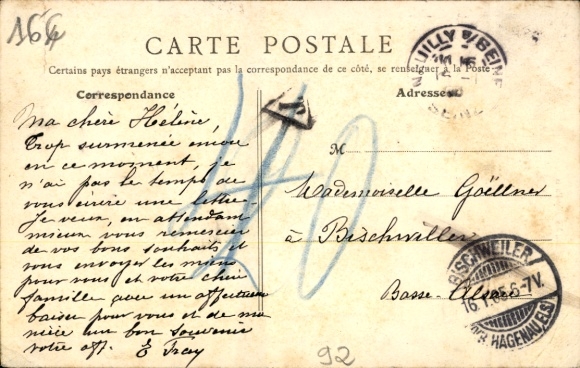 164
CARTE POSTALE
Certains pays étrangers n'acceptant pas la correspondance de ce côté, se renseigner à la Poste
Correspondance
Adresse
NEUILLY S/SEINE
SEINE
T
Ma chère Hélène,
Trop surmenée encore
en ce moment, je
n'ai pas le temps de
vous écrire une lettre.
Je veux, en attendant
mieux vous remercier
de vos bons souhaits et
vous envoyer les miens
pour vous et votre chère
famille avec un affectueux
baiser pour vous et de ma
nièce un bon souvenir
votre aff. E
40
M
Mademoiselle Goëllner
à Bischwiller
Basse-Alsace
BISCHWEILER
16.1.05.6-7V.
(KR. HAGENAU ELS)
92